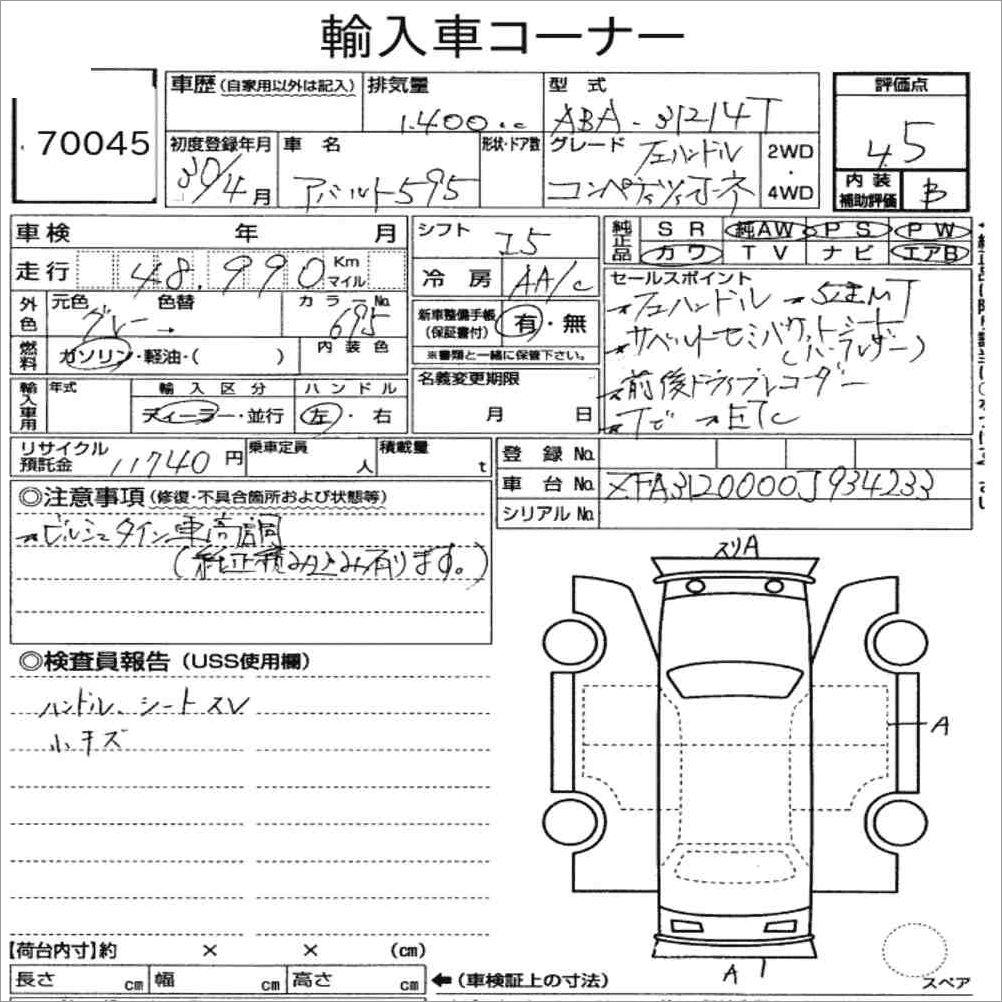 輸入車コーナー
70045
車歴(自家用以外は記入) 排気量 1.400.cc 型式 ABA-31214T
評価点 4.5
初度登録年月 30/4月 車名 アバルト595 形状・ドア数 グレード 左ハンドル コンペティツィオーネ 2WD・4WD
内装補助評価 B
車検 年 月
走行 48.990 Km マイル
シフト I5
冷房 AA/c
純正品 SR 純AW PS PW
カワ TV ナビ エアB
外色 元色 グレー → 色替 カラーNo. 695
燃料 ガソリン・軽油・( ) 内装色
新車整備手帳(保証書付) 有・無
※書類と一緒に保管下さい。
輸入車用 年式 輸入区分 ディーラー・並行 ハンドル 左・右
名義変更期限 月 日
セールスポイント
→左ハンドル →5速MT
→サベルトセミバケットシート
(ハーフレザー)
→前後ドライブレコーダー
→Tで →ETC
リサイクル預託金 11740円 乗車定員 人 積載量 t
登録No.
車台No. ZFA3120000J934233
シリアルNo.
◎注意事項(修復・不具合箇所および状態等)
→ビルシュタイン車高調
(純正積み込み有ります。)
◎検査員報告(USS使用欄)
ハンドル、シートスレ
小キズ
スリA
A
A 1
【荷台内寸】約 × × (cm)
長さ cm 幅 cm 高さ cm ←(車検証上の寸法)
スペア